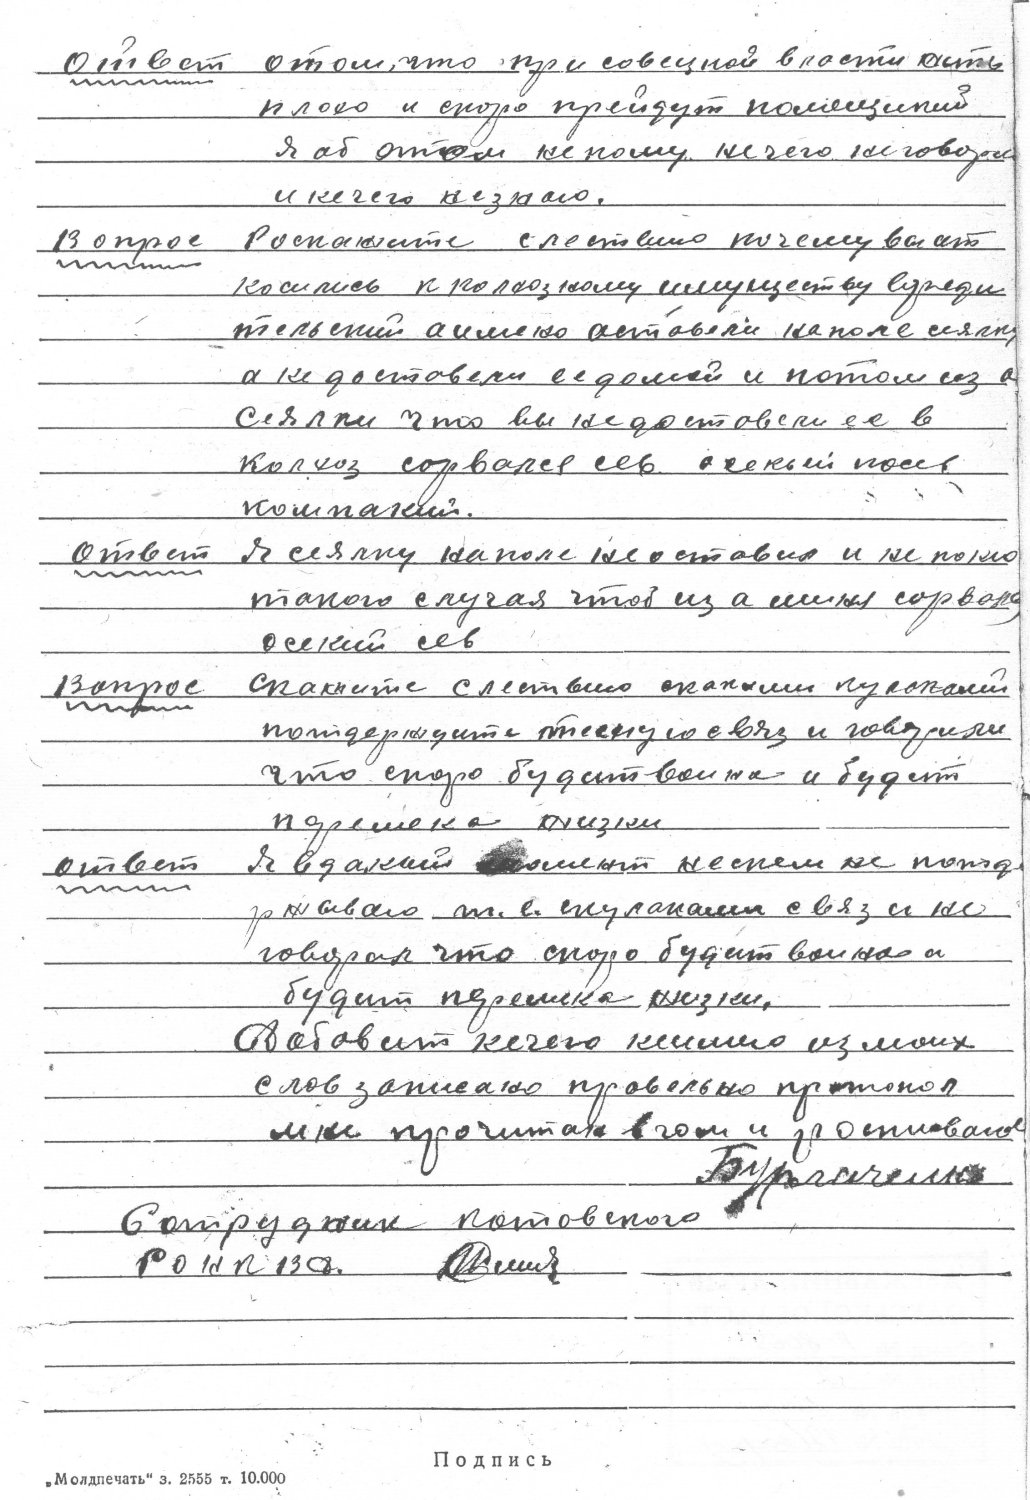 Ответ отом, что при совецкой власти жить
плохо и скоро прейдут помещикий
Я об этом некому нечего неговорил
и нечего незнаю.
Вопрос Роскажите слествию почему вы от
косились к колхозному имуществу вреди
тельский а имено оставели наполе сеялку
а не доставели ее домой и потом из а
Сеялки что вы недоставели ее в
Колхоз сорвался сев осеный посев
компаний.
Ответ Я сеялку наполе неоставил и не помню
такого случая чтоб из а миня сорвался
осений сев
Вопрос Скажите слествию скакими кулаками
потдержуите тесную связ и говорили
что скоро будит воина и будит
перемена жизни
ответ Я вданый момент нескем не потде
рживаю т.е. скулаками связ и не
говорил что скоро будит воина и
будит перемена жизни.
Добовит нечего неимию измоих
слов записано провельно протокол
мне прочитан вчом и росписываюс
Сотрудник Котовского
РО НКВД.
Подпись
„Молдпечать“ з. 2555 т. 10.000